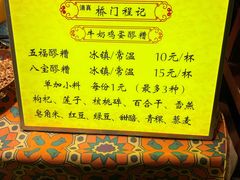 清真 桥门程记
牛奶鸡蛋醪糟
五福醪糟 冰镇/常温 10元/杯
八宝醪糟 冰镇/常温 15元/杯
单加小料 每份1元 (最多3种)
枸杞、莲子、核桃碎、百合干、雪燕
皂角米、红豆、绿豆、甜醅、青稞、藜麦